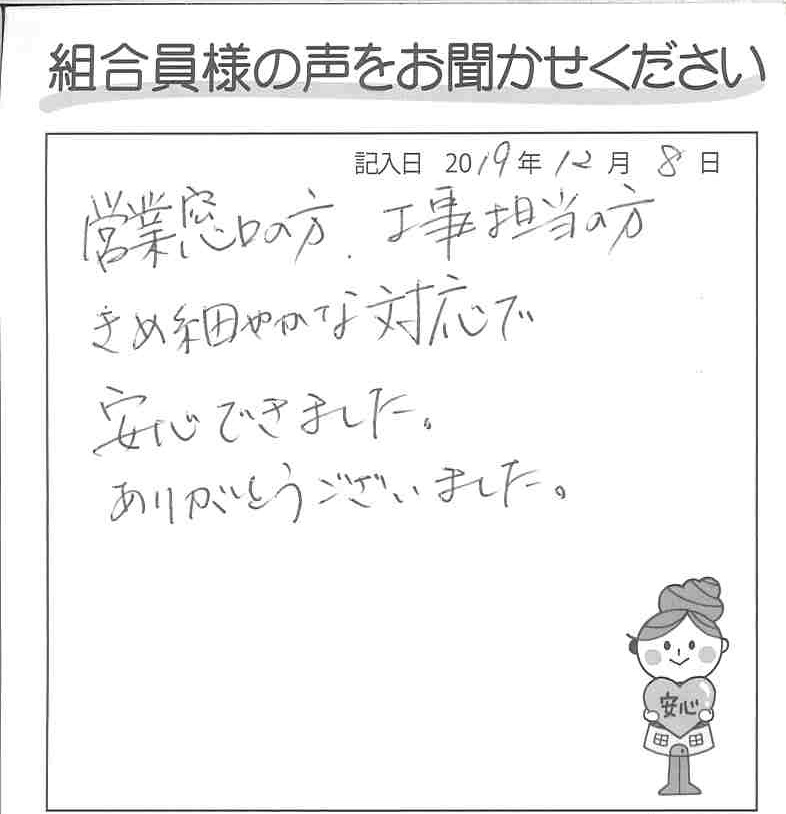 組合員様の声をお聞かせください
記入日 2019年12月8日
営業窓口の方、工事担当の方
きめ細やかな対応で
安心できました。
ありがとうございました。
安心